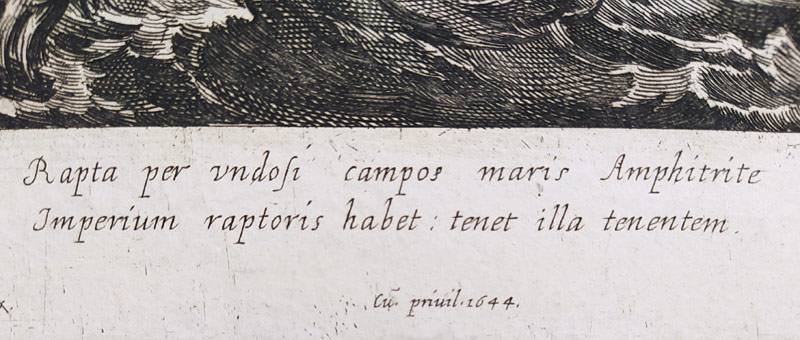 Rapta per vndoſi campos maris Amphitrite
Imperium raptoris habet: tenet illa tenentem.
Cũ. priuil. 1644.